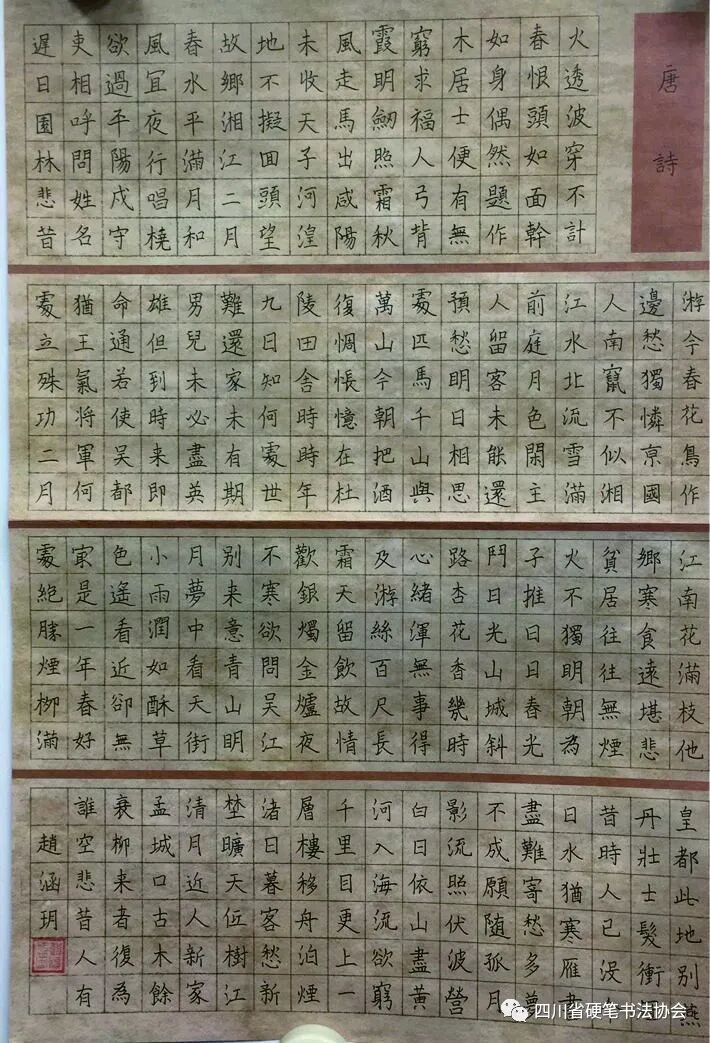 唐詩
火透波穿不計
春恨頭如面幹
如身偶然題作
木居士便有無
窮求福人弓背
霞明劒照霜秋
風走馬出咸陽
未收天子河湟
地不擬回頭望
故鄉湘江二月
春水平滿月和
風宜夜行唱橈
欲過平陽戍守
吏相呼問姓名
遲日園林悲昔
游今春花鳥作
邊愁獨憐京國
人南竄不似湘
江水北流雪滿
前庭月色閑主
人留客未能還
預愁明日相思
處匹馬千山與
萬山今朝把酒
復惆悵憶在杜
陵田舍時時年
九日知何處世
難還家未有期
男兒未必盡英
雄但到時来即
命通若使吳都
猶王氣將軍何
處立殊功二月
江南花滿枝他
鄉寒食遠堪悲
貧居往往無煙
火不獨明朝為
子推日日春光
鬥日光山城斜
路杏花香幾時
心緒渾無事得
及游絲百尺長
霜天留飲故情
歡銀燭金爐夜
不寒欲問吳江
别来意青山明
月夢中看天街
小雨潤如酥草
色遥看近卻無
冣是一年春好
處絕勝煙柳滿
皇都此地別燕
丹壯士髮衝
昔時人已沒
日水猶寒雁書
盡難寄愁多夢
不成願隨孤月
影流照伏波營
白日依山盡黃
河入海流欲窮
千里目更上一
層樓移舟泊煙
渚日暮客愁新
埜曠天低樹江
清月近人新家
孟城口古木餘
衰柳来者復為
誰空悲昔人有
趙涵玥
四川省硬笔书法协会